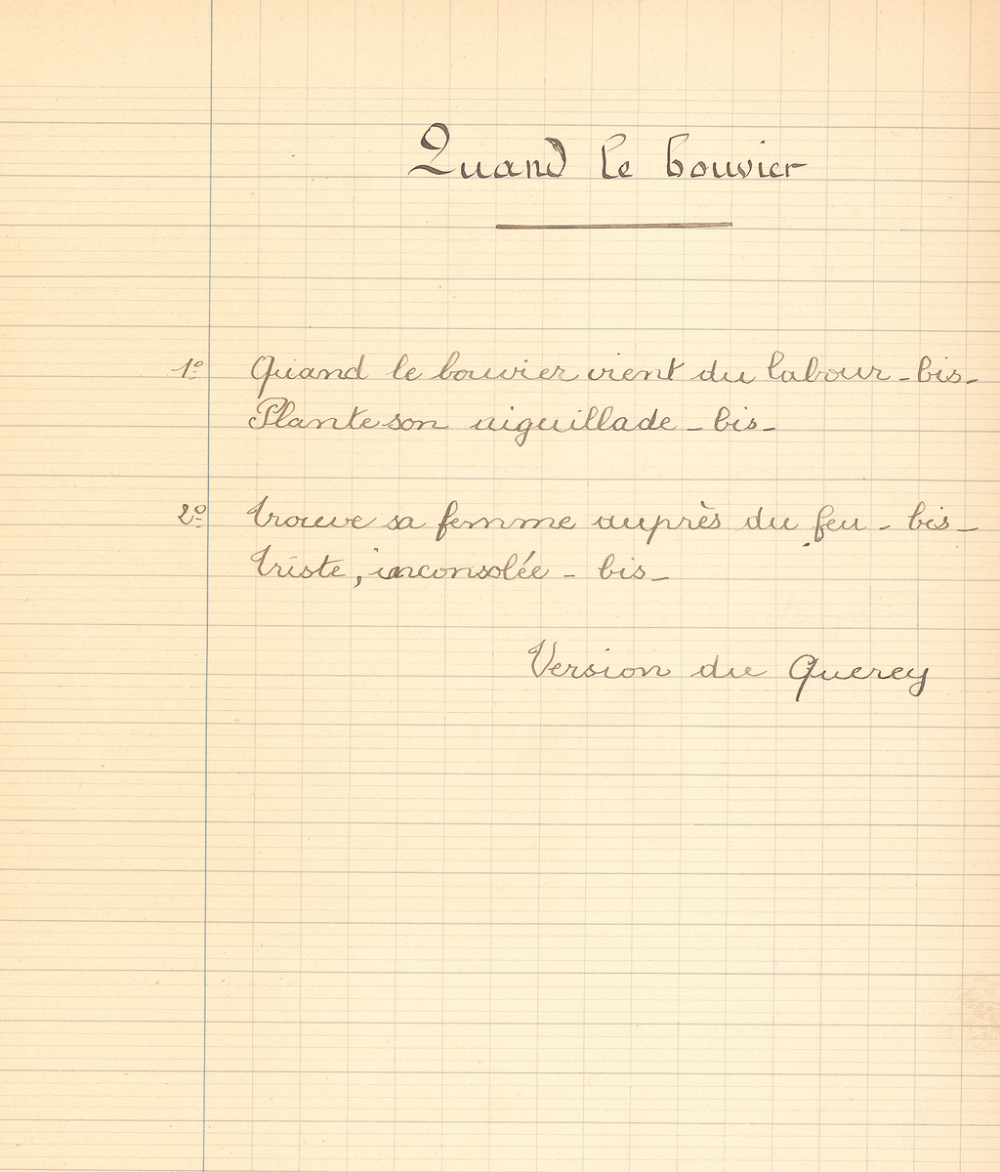 Quand le bouvier
1º Quand le bouvier vient du labour - bis -
Plante son aiguillade - bis -
2º Trouve sa femme auprès du feu - bis -
Triste, inconsolée - bis -
Version du Quercy